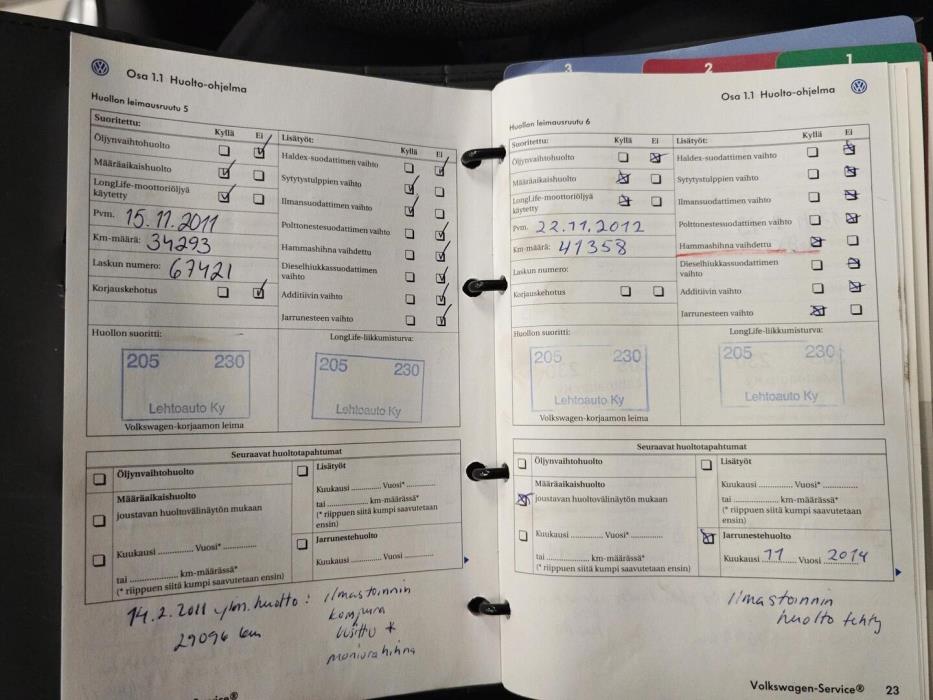 3
2
1
Osa 1.1 Huolto-ohjelma
Huollon leimausruutu 5
Suoritettu:
Kyllä
Ei
Öljynvaihtohuolto
Määräaikaishuolto
LongLife-moottoriöljyä
käytetty
Pvm. 15.11.2011
Km-määrä: 34293
Laskun numero: 67421
Korjauskehotus
Lisätyöt:
Kyllä
Ei
Haldex-suodattimen vaihto
Sytytystulppien vaihto
Ilmansuodattimen vaihto
Polttonestesuodattimen vaihto
Hammashihna vaihdettu
Dieselhiukkassuodattimen
vaihto
Additiivin vaihto
Jarrunesteen vaihto
Huollon suoritti:
205 230
Lehtoauto Ky
Volkswagen-korjaamon leima
LongLife-liikkumisturva:
205 230
Lehtoauto Ky
Seuraavat huoltotapahtumat
Öljynvaihtohuolto
Määräaikaishuolto
joustavan huoltovälinäytön mukaan
Kuukausi .............. Vuosi* ..............
tai .................... km-määrässä*
(* riippuen siitä kumpi saavutetaan ensin)
Lisätyöt
Kuukausi ............ Vuosi* ..............
tai ................ km-määrässä*
(* riippuen siitä kumpi saavutetaan
ensin)
Jarrunestehuolto
Kuukausi ............ Vuosi ..............
14.2.2011 ylm. huolto: ilmastoinnin
29096 km kompura
uusittu *
moniurahihna
Osa 1.1 Huolto-ohjelma
Huollon leimausruutu 6
Suoritettu:
Kyllä
Ei
Öljynvaihtohuolto
Määräaikaishuolto
LongLife-moottoriöljyä
käytetty
Pvm. 22.11.2012
Km-määrä: 41358
Laskun numero:
Korjauskehotus
Lisätyöt:
Kyllä
Ei
Haldex-suodattimen vaihto
Sytytystulppien vaihto
Ilmansuodattimen vaihto
Polttonestesuodattimen vaihto
Hammashihna vaihdettu
Dieselhiukkassuodattimen
vaihto
Additiivin vaihto
Jarrunesteen vaihto
Huollon suoritti:
205 230
Lehtoauto Ky
Volkswagen-korjaamon leima
LongLife-liikkumisturva:
205 230
Lehtoauto Ky
Seuraavat huoltotapahtumat
Öljynvaihtohuolto
Määräaikaishuolto
joustavan huoltovälinäytön mukaan
Kuukausi .............. Vuosi* ..............
tai .................... km-määrässä*
(* riippuen siitä kumpi saavutetaan ensin)
Lisätyöt
Kuukausi ............ Vuosi* ..............
tai ................ km-määrässä*
(* riippuen siitä kumpi saavutetaan
ensin)
Jarrunestehuolto
Kuukausi 11 Vuosi 2014
Ilmastoinnin
huolto tehty
Volkswagen-Service® 23